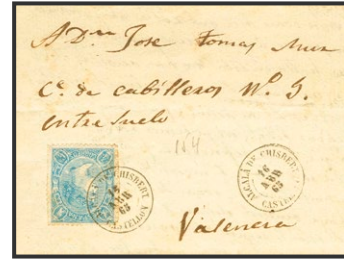 A Dn Jose Tomas
Ce de cabilleros Nº 3.
entresuelo
ALCALÁ DE CHISBERT
16
ABR
65
CASTELLON
ALCALÁ DE CHISBERT
16
ABR
65
CASTELLON
Valencia